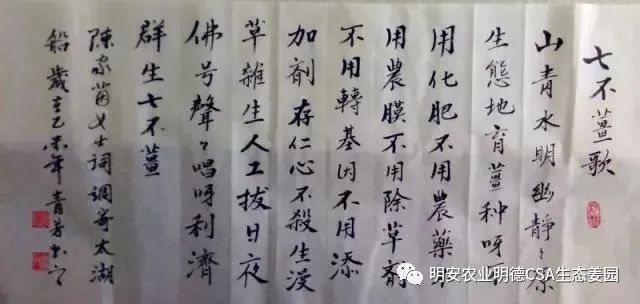 七不薑歌
山青水明幽靜〻原
生態地育薑種呀不
用化肥不用農藥不
用農膜不用除草劑
不用轉基因不用添
加劑存仁心不殺生漫
草雜生人工拔日夜
佛号聲〻唱呀利濟
群生七不薑
陳家茵女士詞調寄太湖
船 歲在乙未年青
明安农业明德CSA生态姜园